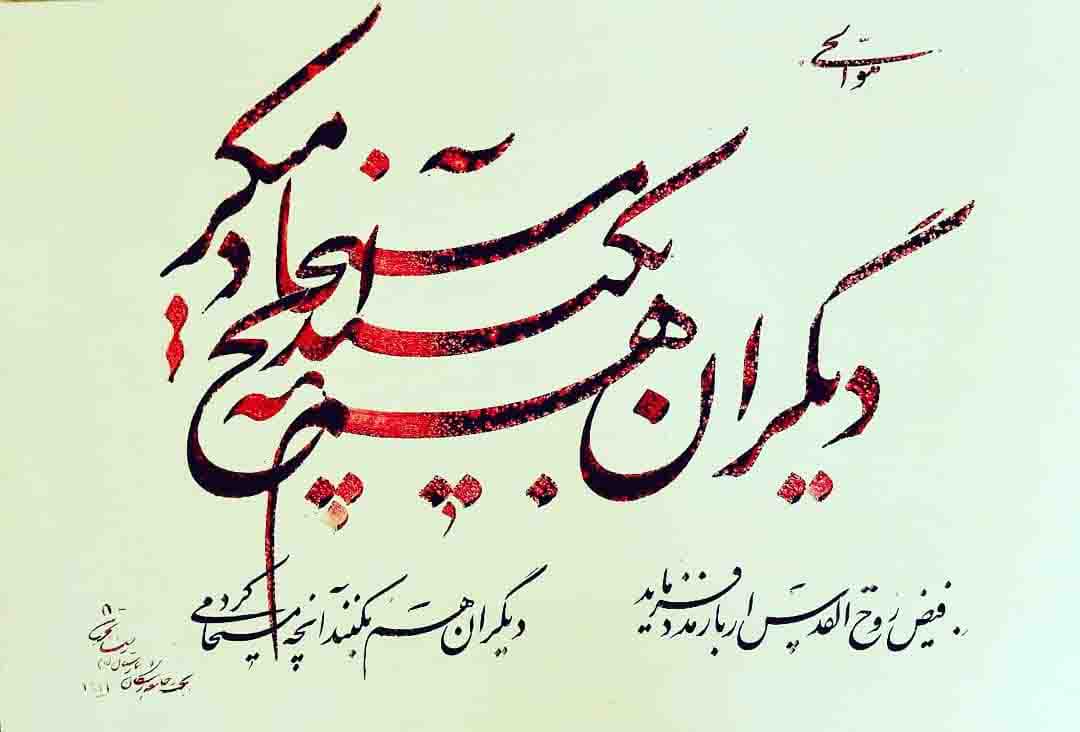 هوالحی
دیگران هم بکنند آنچه مسیحا میکرد
فیض روح القدس ار باز مدد فرماید
دیگران هم بکنند آنچه مسیحا می کرد